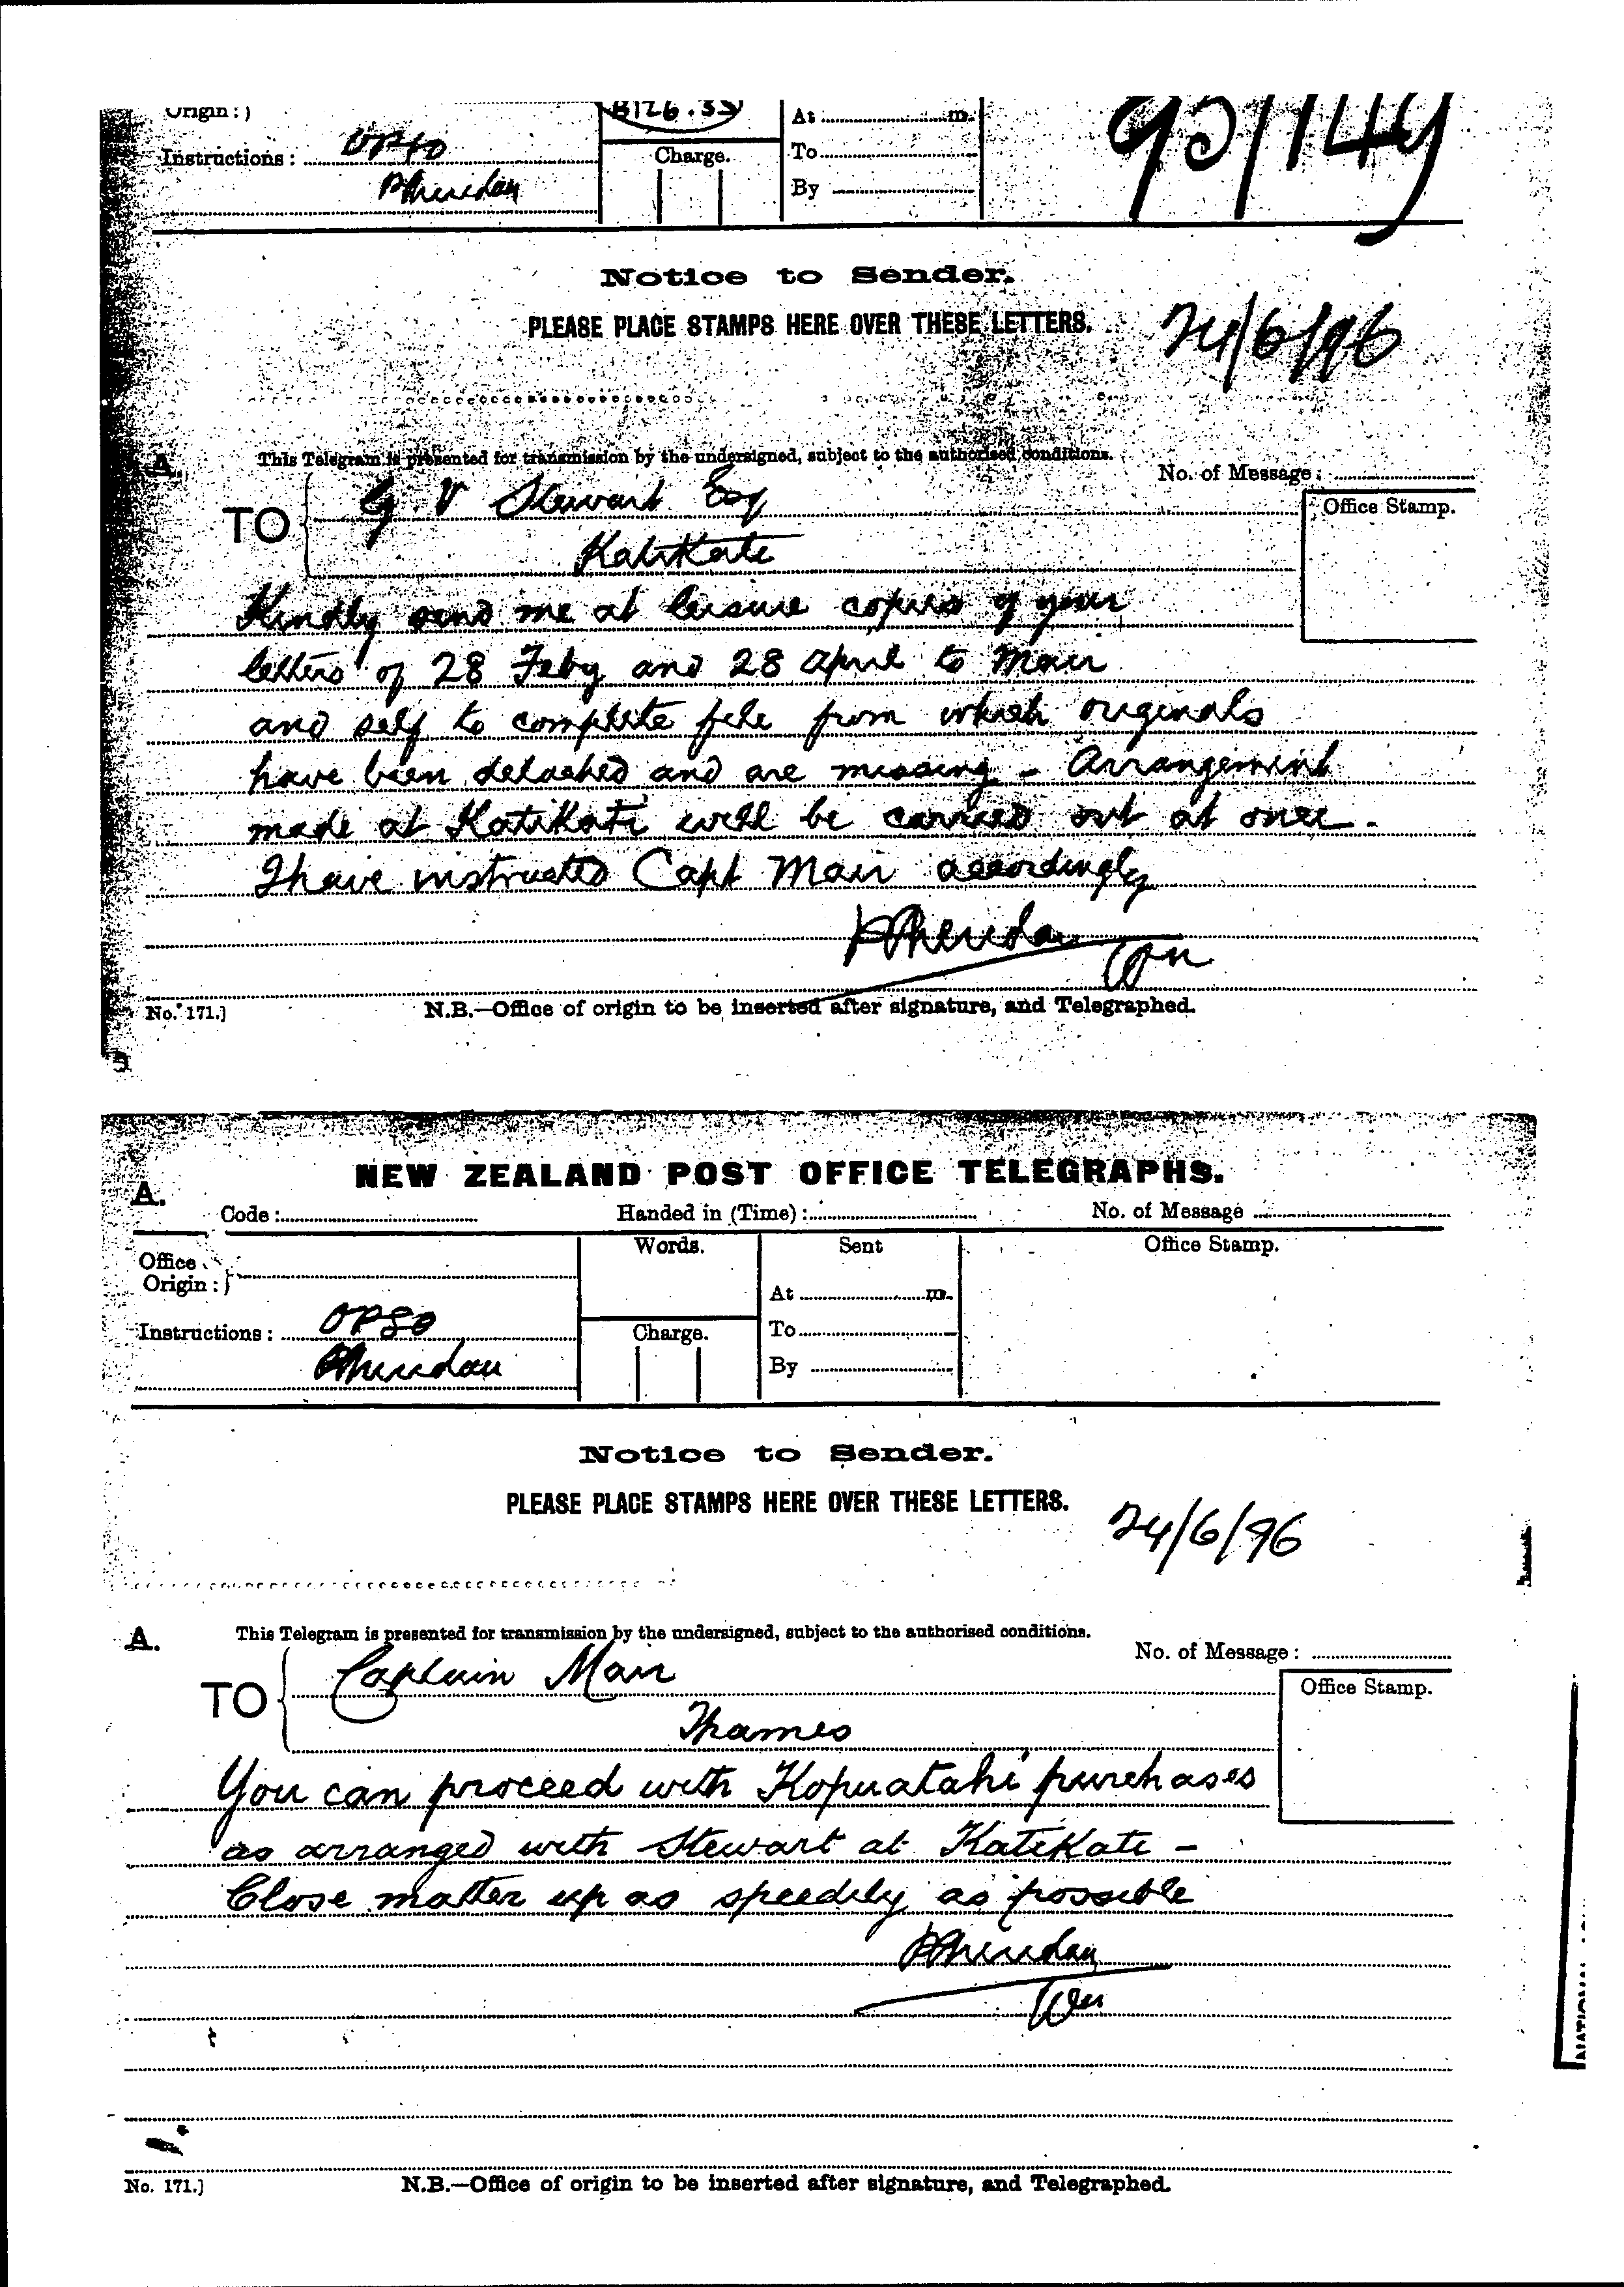 Origin:}
B126.35
At ........ m.
90/149
Instructions: OPSO
Charge.
To
PSheridan
By
Notice to Sender.
PLEASE PLACE STAMPS HERE OVER THESE LETTERS.
24/6/96
A. This Telegram is presented for transmission by the undersigned, subject to the authorised conditions.
No. of Message:
TO G V Stewart Esq
Office Stamp.
Katikati
Kindly send me at leisure copies of your
letters of 28 Feby and 28 April to Mair
and self to complete file from which originals
have been detached and are missing - Arrangement
made at Katikati will be carried out at once -
I have instructed Capt Mair accordingly
PSheridan
No. 171.]
N.B.—Office of origin to be inserted after signature, and Telegraphed.
NEW ZEALAND POST OFFICE TELEGRAPHS.
A.
Code: Handed in (Time): No. of Message
Office Origin:}
Words.
Sent
Office Stamp.
At ........ m.
Instructions: OPSO
Charge.
To
PSheridan
By
Notice to Sender.
PLEASE PLACE STAMPS HERE OVER THESE LETTERS.
24/6/96
A. This Telegram is presented for transmission by the undersigned, subject to the authorised conditions.
No. of Message:
TO Captain Mair
Office Stamp.
Thames
You can proceed with Kopuatahi purchases
as arranged with Stewart at Katikati -
Close matter up as speedily as possible
PSheridan
No. 171.]
N.B.—Office of origin to be inserted after signature, and Telegraphed.